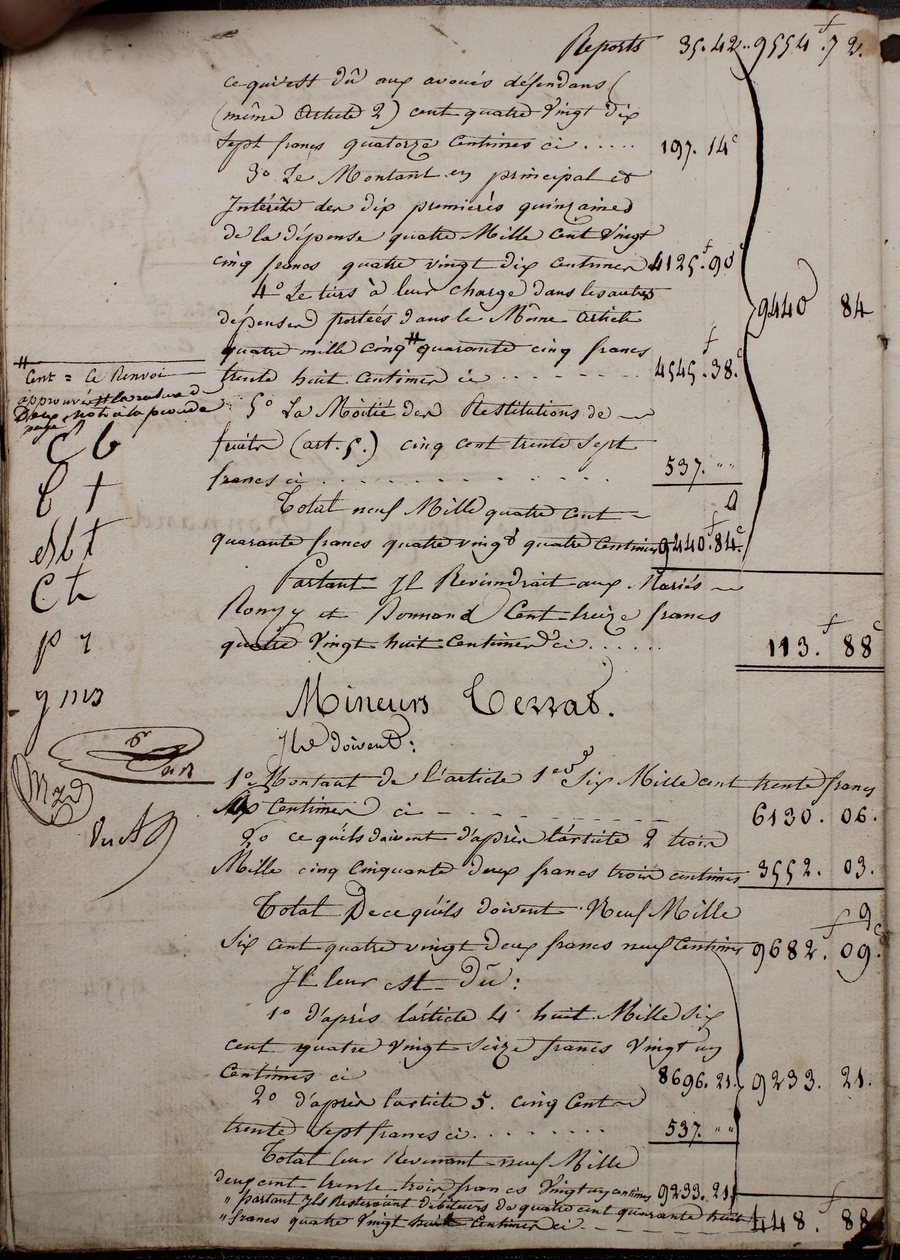 Reports 35.42 9554f.72
ce qui est dû aux avoués défendans
(même article 2) cent quatre vingt dix
sept francs quatorze centimes ci ..... 197.14c
3o Le Montant en principal et
Intérêts des dix premières quinzaines
de la dépense quatre Mille Cent Vingt
cinq francs quatre vingt dix centimes 4125f.90c
4o Le tiers à leur charge dans les autres
dépenses portées dans le Même article
quatre mille cinq # quarante cinq francs
trente huit centimes ci ........ 4545f.38c
5o La Moitié des Restitutions de
fruits (art. 5.) cinq cent trente sept
francs ci .......... 537. " "
Total neuf Mille quatre cent
quarante francs quatre vingt quatre centimes 9440f.84c.
9440 84
Partant Il Reviendrait aux Mariés
Romzy et Bonnand Cent treize francs
quatre Vingt huit centimes ci ...... 113.f 88c
#
Cent = Ce Renvoi
approuvé et la rature de
Deux mots à la présente
page
C b
C t
Ct
p r
Mineurs Terras.
Ils doivent:
1o Montant de l'article 1er Six Mille cent trente francs
six Centimes ci 6130. 06.
2o ce qu'ils doivent d'après l'article 2 trois
Mille cinq cinquante deux francs trois centimes 3552. 03.
Total De ce qu'ils doivent Neuf Mille
Six cent quatre vingt deux francs neuf Centimes 9682.f 09c.
Il leur est Dû:
1o d'après l'article 4 huit Mille six
cent quatre vingt seize francs Vingt un
Centimes ci 8696.21. 9233. 21.
2o d'après l'article 5. cinq Cent
trente sept francs ci ........ 537. " "
Total leur Revenant neuf Mille
deux cent trente trois francs Vingt un centimes 9233.21
" partant Ils Resteraient Débiteurs de quatre cent quarante huit
" francs quatre Vingt huit Centimes ci 448.f 88